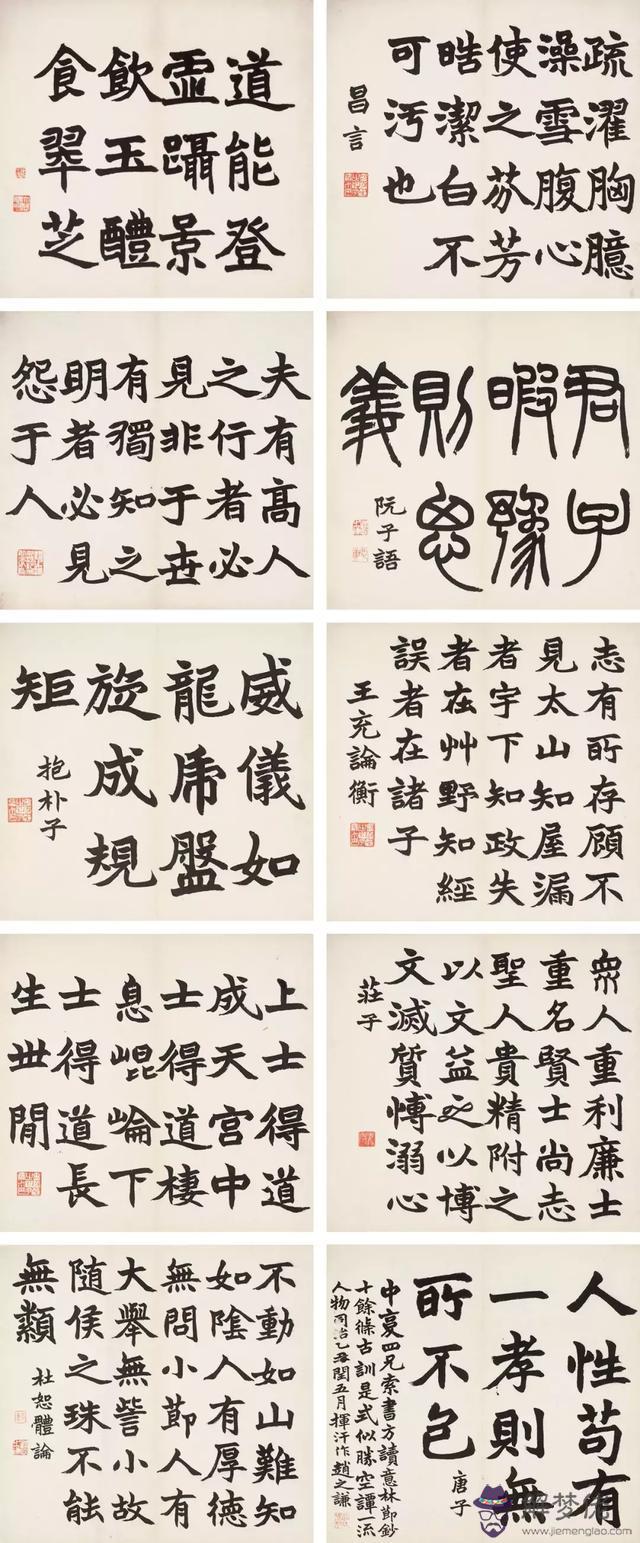 疏濯胸臆
澡雪腹心
使之芬芳
皓潔白不
可污也
昌言
道能登
虛躡景
飲玉醴
食翠芝
君子
暇豫
則思
義
阮子語
夫有高人
之行者必
見非于世
有獨知之
明者必見
怨于人
志有所存顧不
見太山知屋漏
者宇下知政失
者在艸野知經
誤者在諸子
王充論衡
威儀如
龍虎盤
旋成規
矩
抱朴子
眾人重利廉士
重名賢士尚志
聖人貴精附之
以文益之以博
文滅質博溺心
莊子
上士得道
成天宮中
士得道棲
息崐崘下
士得道長
生世閒
人性苟有
一孝則無
所不包
唐子
中夏四兄索書方讀意林節鈔
十餘條古訓是式似勝空譚一流
人物同治乙丑閏五月揮汗作趙之謙
不動如山難知
如陰人有厚德
無問小節人有
大舉無訾小故
隨侯之珠不能
無纇
杜恕體論
解梦佬
www.jiemenglao.com